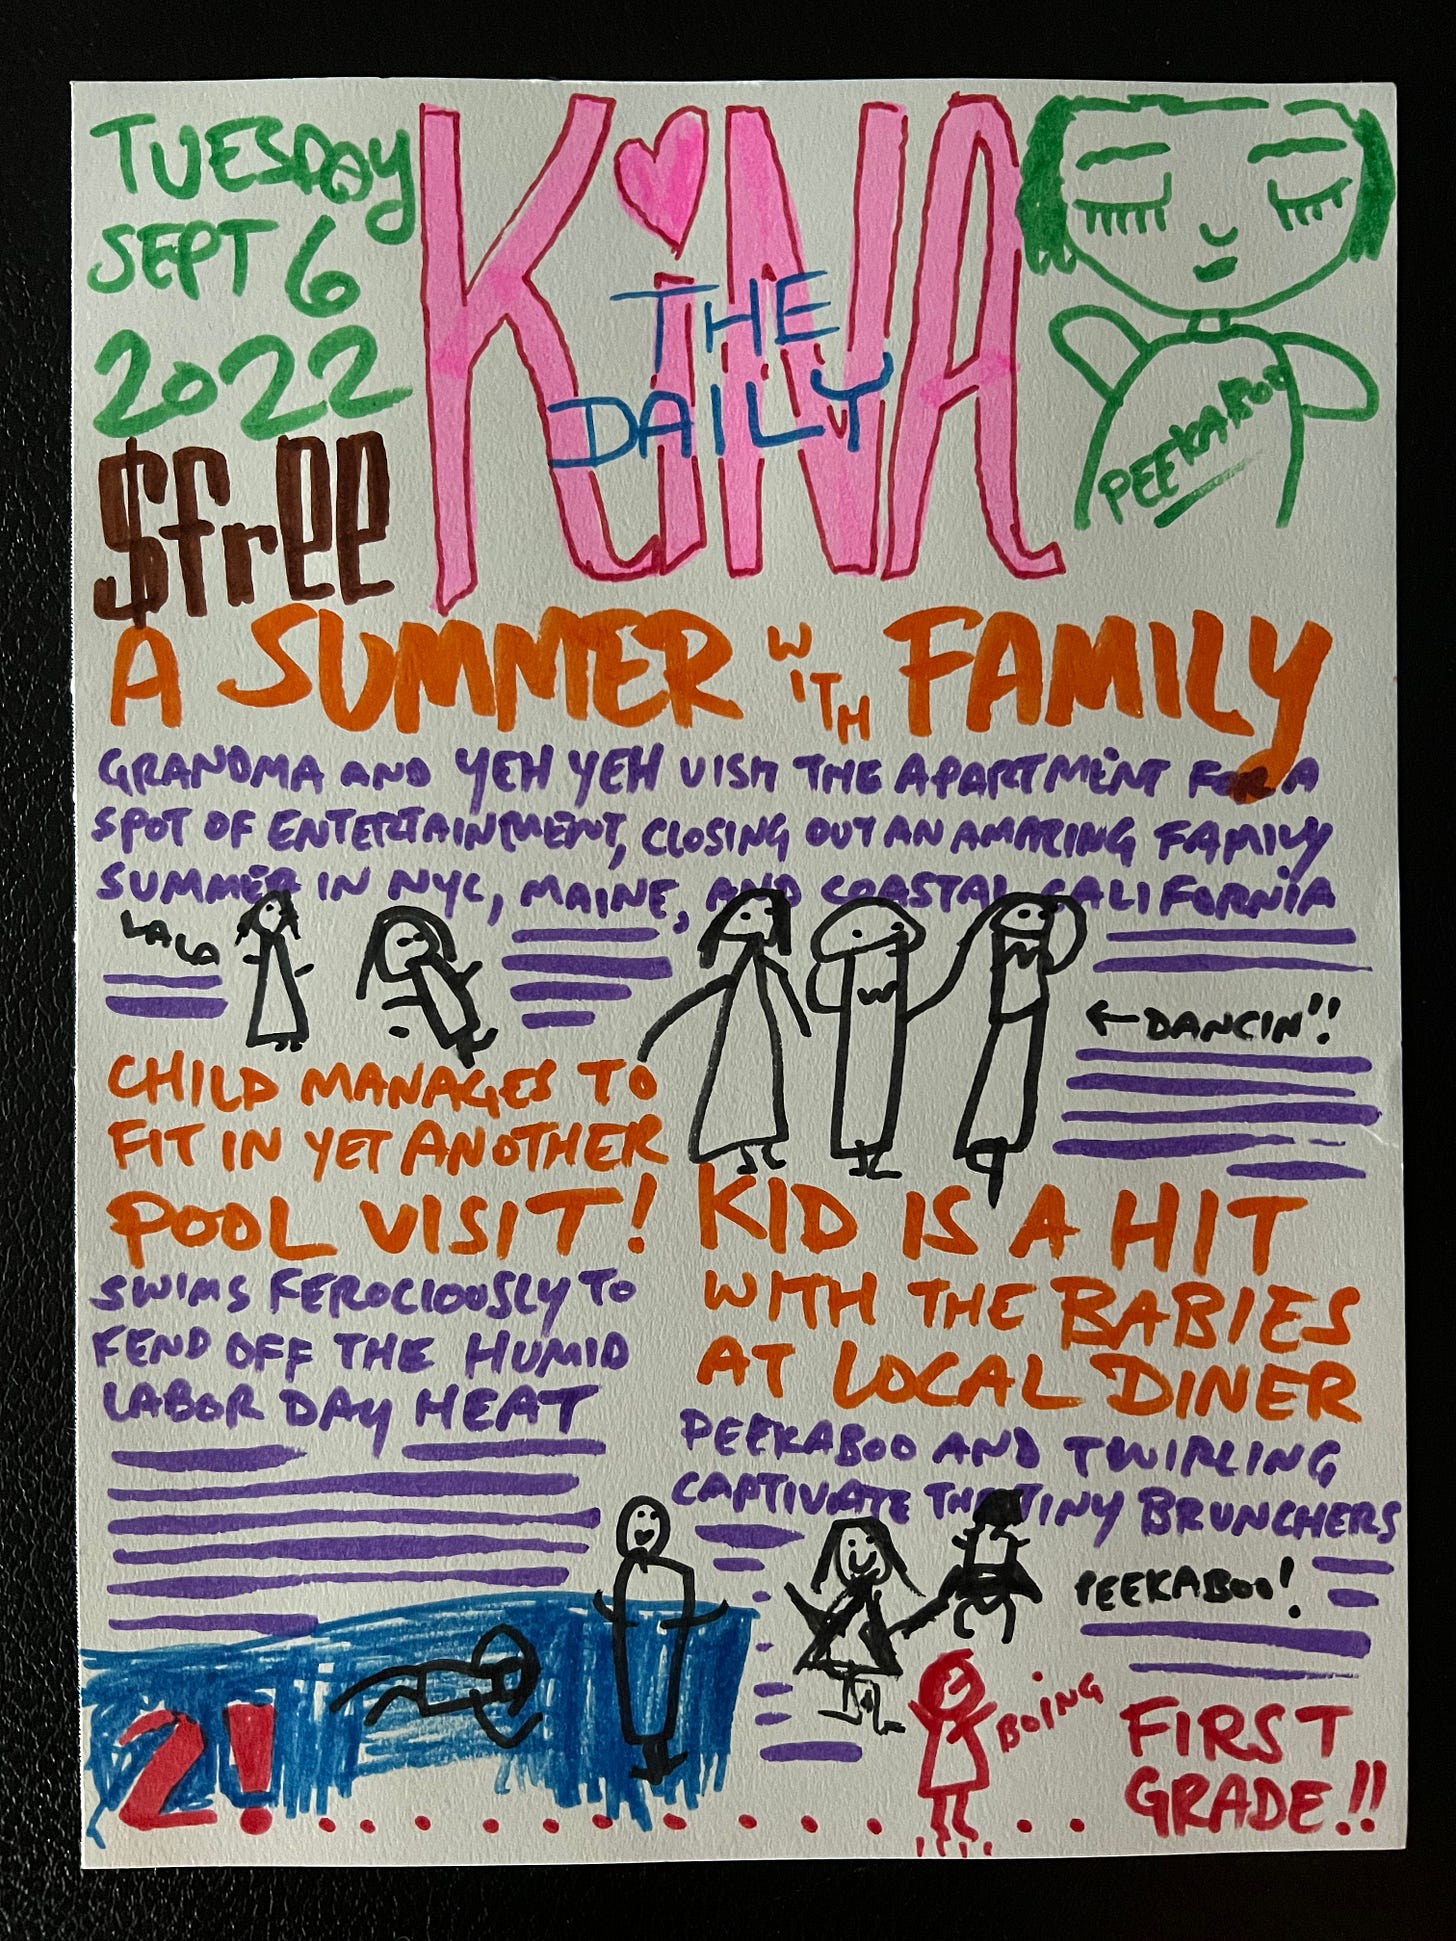 TUESDAY
SEPT 6
2022
$free
KiNA
THE
DAILY
PEEKABOO
A SUMMER WITH FAMILY
GRANDMA AND YEH YEH VISIT THE APARTMENT FOR A
SPOT OF ENTERTAINMENT, CLOSING OUT AN AMAZING FAMILY
SUMMER IN NYC, MAINE, AND COASTAL CALIFORNIA
LALA
←DANCIN'!!
CHILD MANAGES TO
FIT IN YET ANOTHER
POOL VISIT!
SWIMS FEROCIOUSLY TO
FEND OFF THE HUMID
LABOR DAY HEAT
KID IS A HIT
WITH THE BABIES
AT LOCAL DINER
PEEKABOO AND TWIRLING
CAPTIVATE THE TINY BRUNCHERS
PEEKABOO!
BOING
2!..........
FIRST
GRADE!!